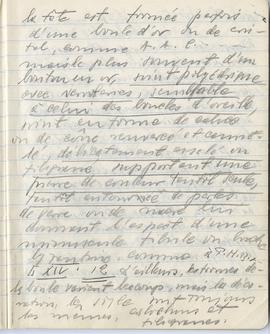 la tête est formée parfois
d'une boule d'or ou de cris-
tal, comme A. A. C.
mais le plus souvent d'un
bouton en or, soit polyédrique
avec verroteries, semblable
à celui des boucles d'oreille,
soit en forme de calice
ou de cône renversé et
délicatement ciselé en
filigrane supportant une
pierre de couleur tantôt seule,
tantôt entourée de perles
de verre ou de nacre lui
donnant l'aspect d'une
minuscule fibule ou broche
byzantine comme
XIV. 12. D'ailleurs,
la boule varient beaucoup, mais la déco-
ration, le style sont toujours
les mêmes,
filigranes.